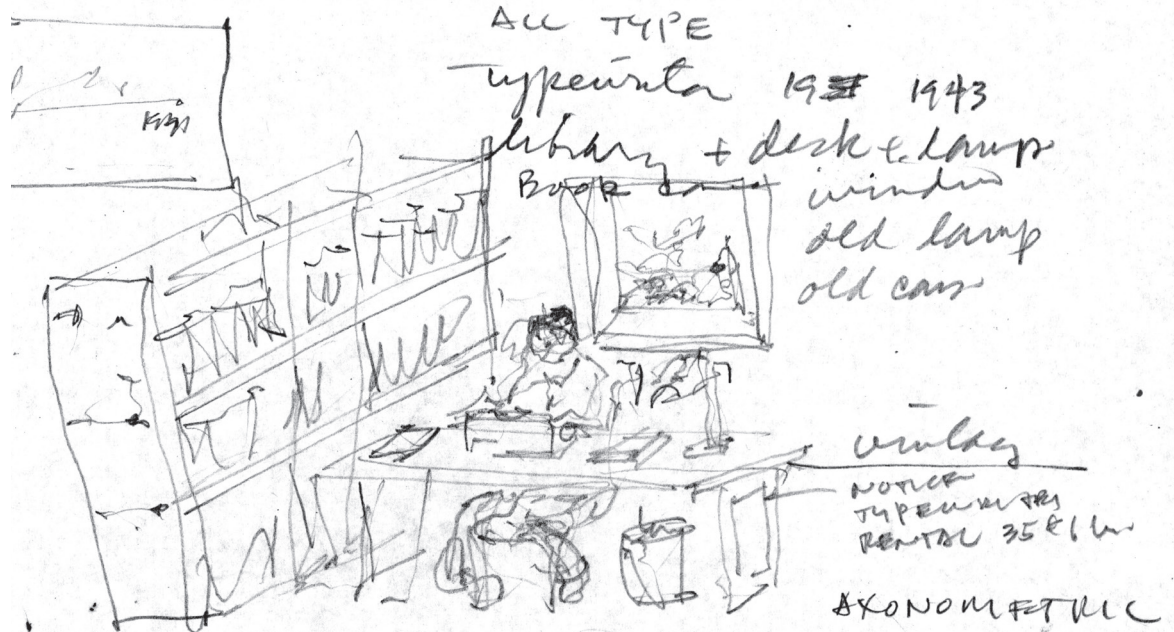 ALL TYPE
Typewriter 1943
library + desk & lamp
Book
window
old lamp
old cars
NOTICE
TYPEWRITERS
RENTAL 35¢
AXONOMETRIC